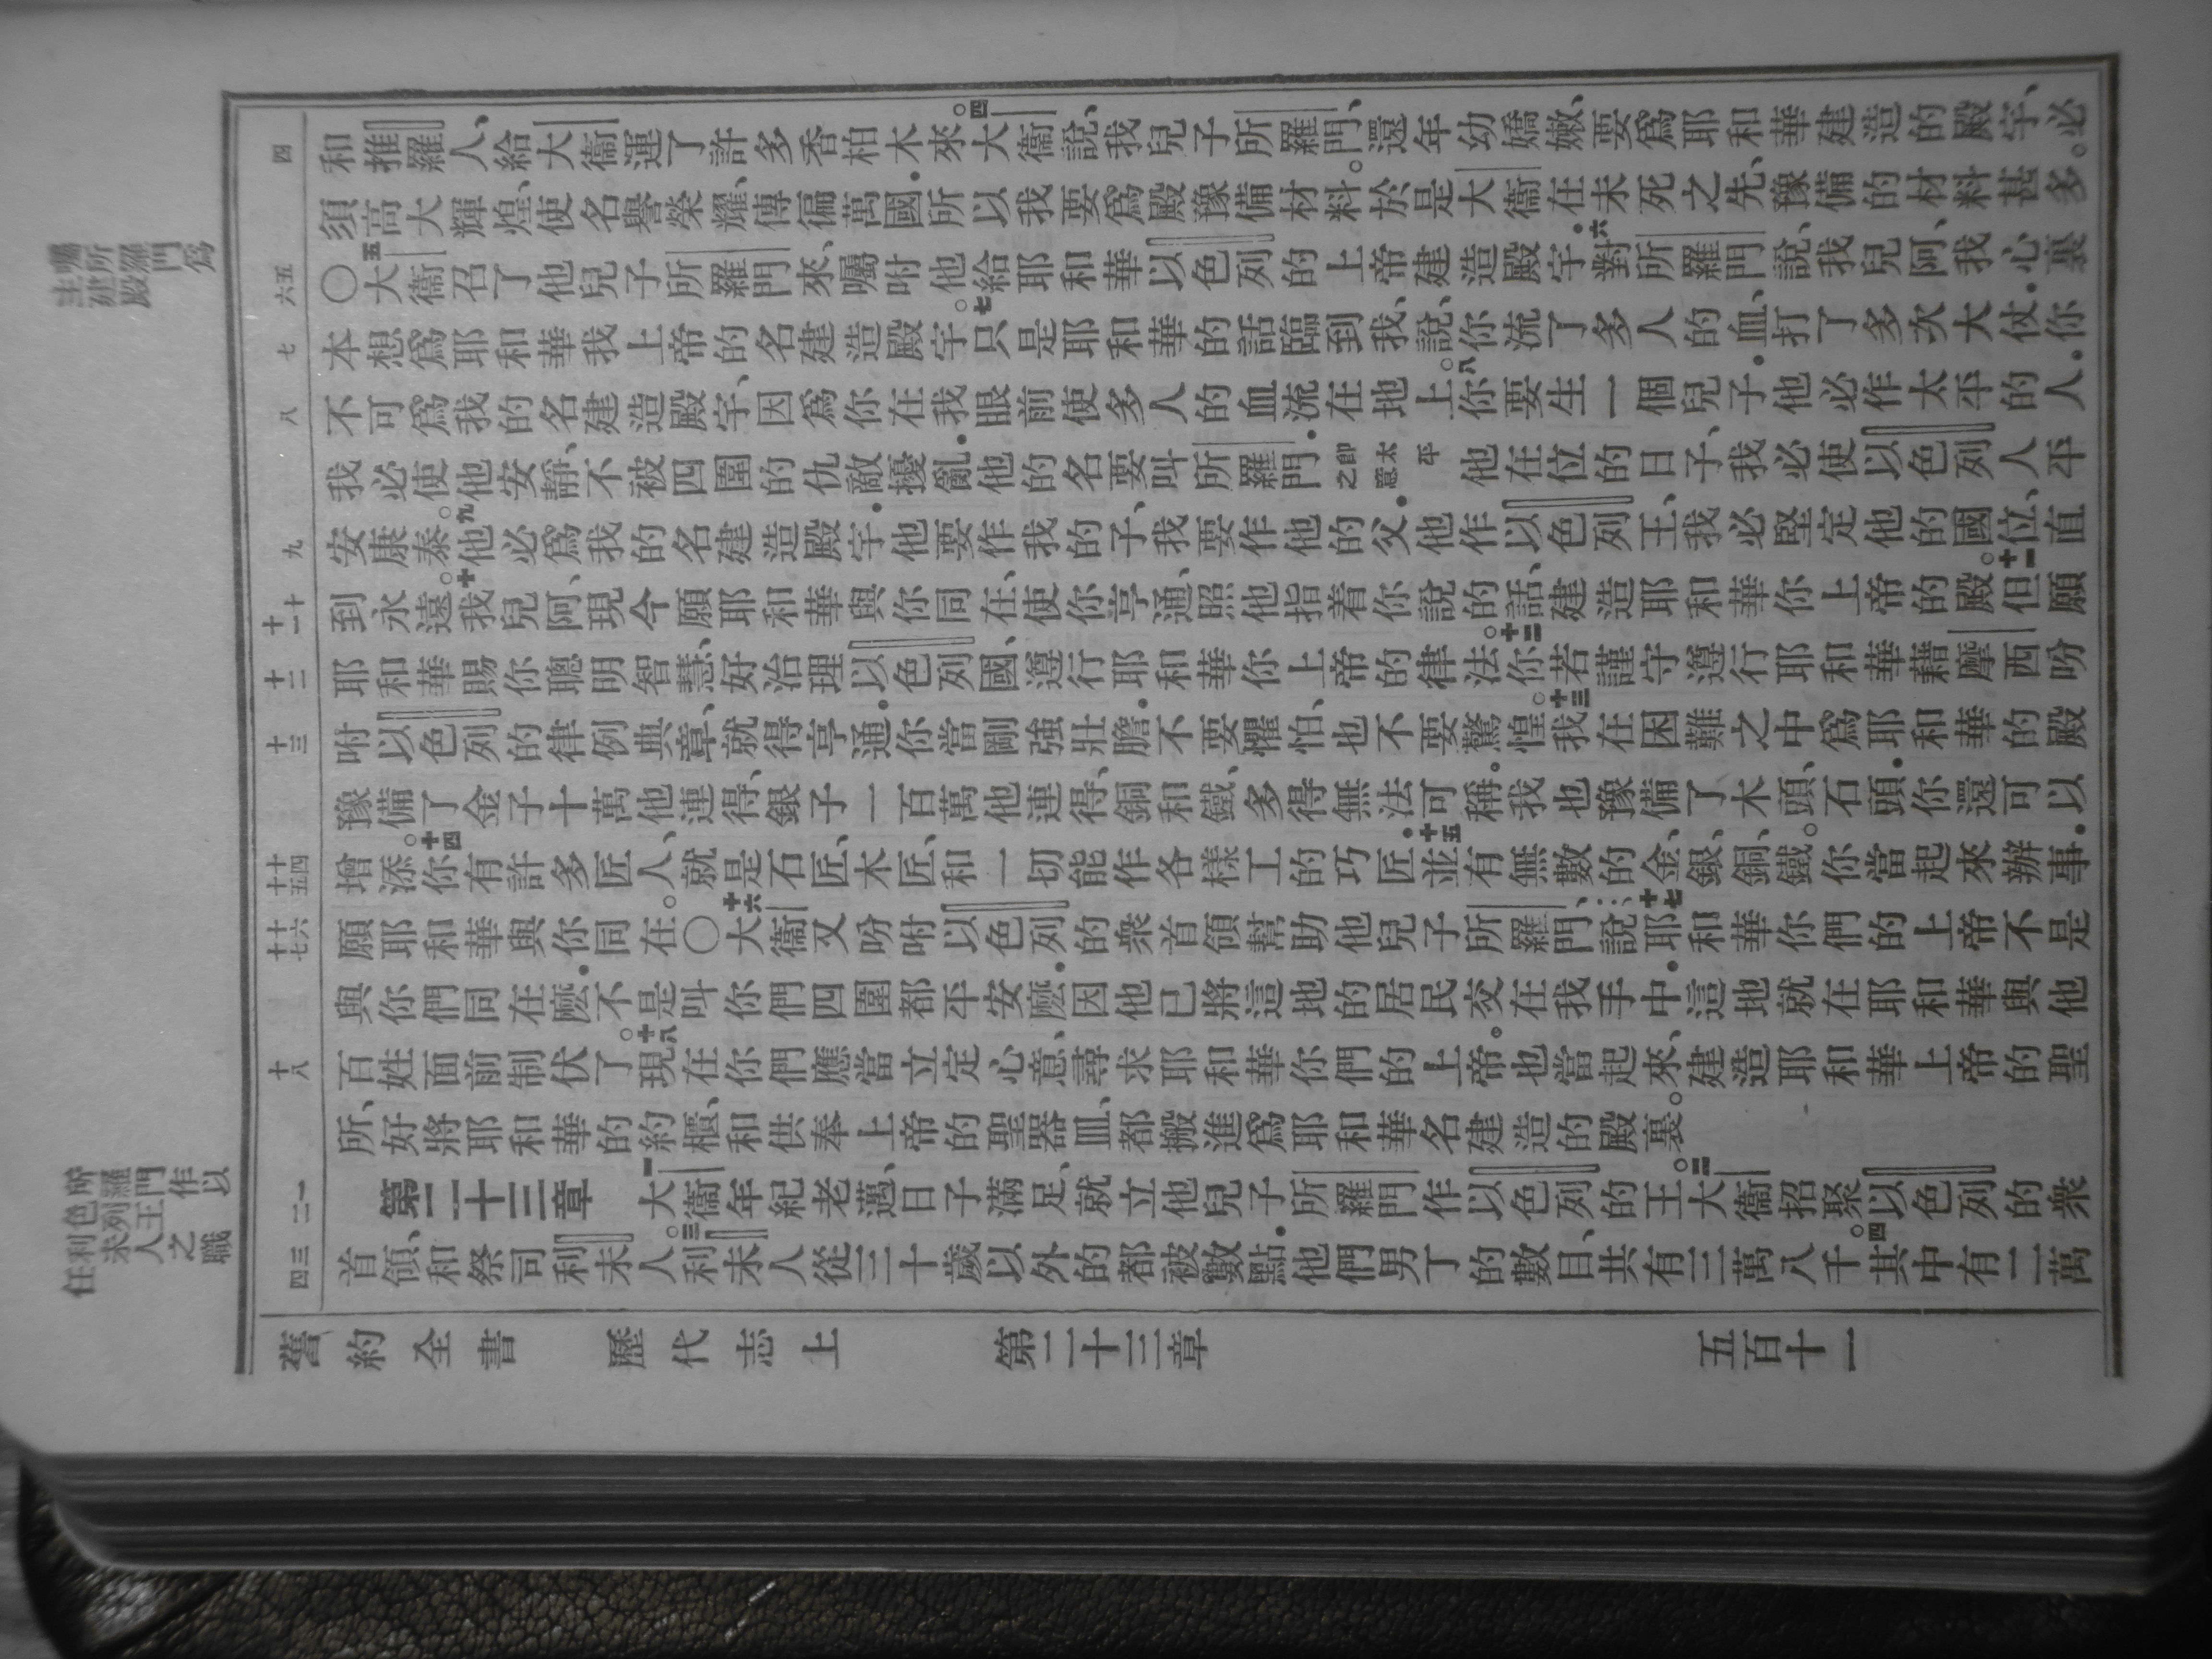 囑所羅門爲
主建殿
所羅門作以
色列王
利未人之職
任
四
和推羅人、給大衞運了許多香柏木來。四大衞說、我兒子所羅門、還年幼嬌嫩、要爲耶和華建造的殿宇、必
須高大輝煌、使名譽榮耀、傳徧萬國．所以我要爲殿豫備材料。於是大衞在未死之先、豫備的材料甚多。
五
六
〇五大衞召了他兒子所羅門來、囑咐他給耶和華以色列的上帝建造殿宇．六對所羅門說、我兒阿、我心裏
七
本想爲耶和華我上帝的名建造殿宇。七只是耶和華的話臨到我、說、你流了多人的血、打了多次大仗．你
八
不可爲我的名建造殿宇、因爲你在我眼前使多人的血流在地上。八你要生一個兒子．他必作太平的人．
我必使他安靜、不被四圍的仇敵擾亂．他的名要叫所羅門．卽太平之意他在位的日子、我必使以色列人平
九
安康泰。九他必爲我的名建造殿宇．他要作我的子、我要作他的父．他作以色列王、我必堅定他的國位、直
十
十一
到永遠。十我兒阿、現今願耶和華與你同在、使你亨通、照他指着你說的話、建造耶和華你上帝的殿。十一但願
十二
耶和華賜你聰明智慧、好治理以色列國、遵行耶和華你上帝的律法。十二你若謹守遵行耶和華藉摩西吩
十三
咐以色列的律例典章、就得亨通．你當剛強壯膽．不要懼怕、也不要驚惶。十三我在困難之中爲耶和華的殿
豫備了金子十萬他連得、銀子一百萬他連得、銅和鐵、多得無法可稱．我也豫備了木頭、石頭．你還可以
十四
十五
增添。十四你有許多匠人、就是石匠、木匠、和一切能作各樣工的巧匠．十五並有無數的金、銀、銅、鐵。你當起來辦事．
十六
十七
願耶和華與你同在。〇十六大衞又吩咐以色列的衆首領幫助他兒子所羅門、說．十七耶和華你們的上帝不是
與你們同在麼．不是叫你們四圍都平安麼．因他已將這地的居民交在我手中．這地就在耶和華與他
十八
百姓面前制伏了。十八現在你們應當立定心意、尋求耶和華你們的上帝。也當起來、建造耶和華上帝的聖
所、好將耶和華的約櫃、和供奉上帝的聖器皿、都搬進爲耶和華名建造的殿裏。
一
二
第二十三章 一大衞年紀老邁、日子滿足、就立他兒子所羅門作以色列的王。二大衞招聚以色列的衆
三
四
首領、和祭司利未人。三利未人從三十歲以外的都被數點．他們男丁的數目、共有三萬八千。四其中有二萬
舊約全書 歷代志上 第二十三章 五百十一